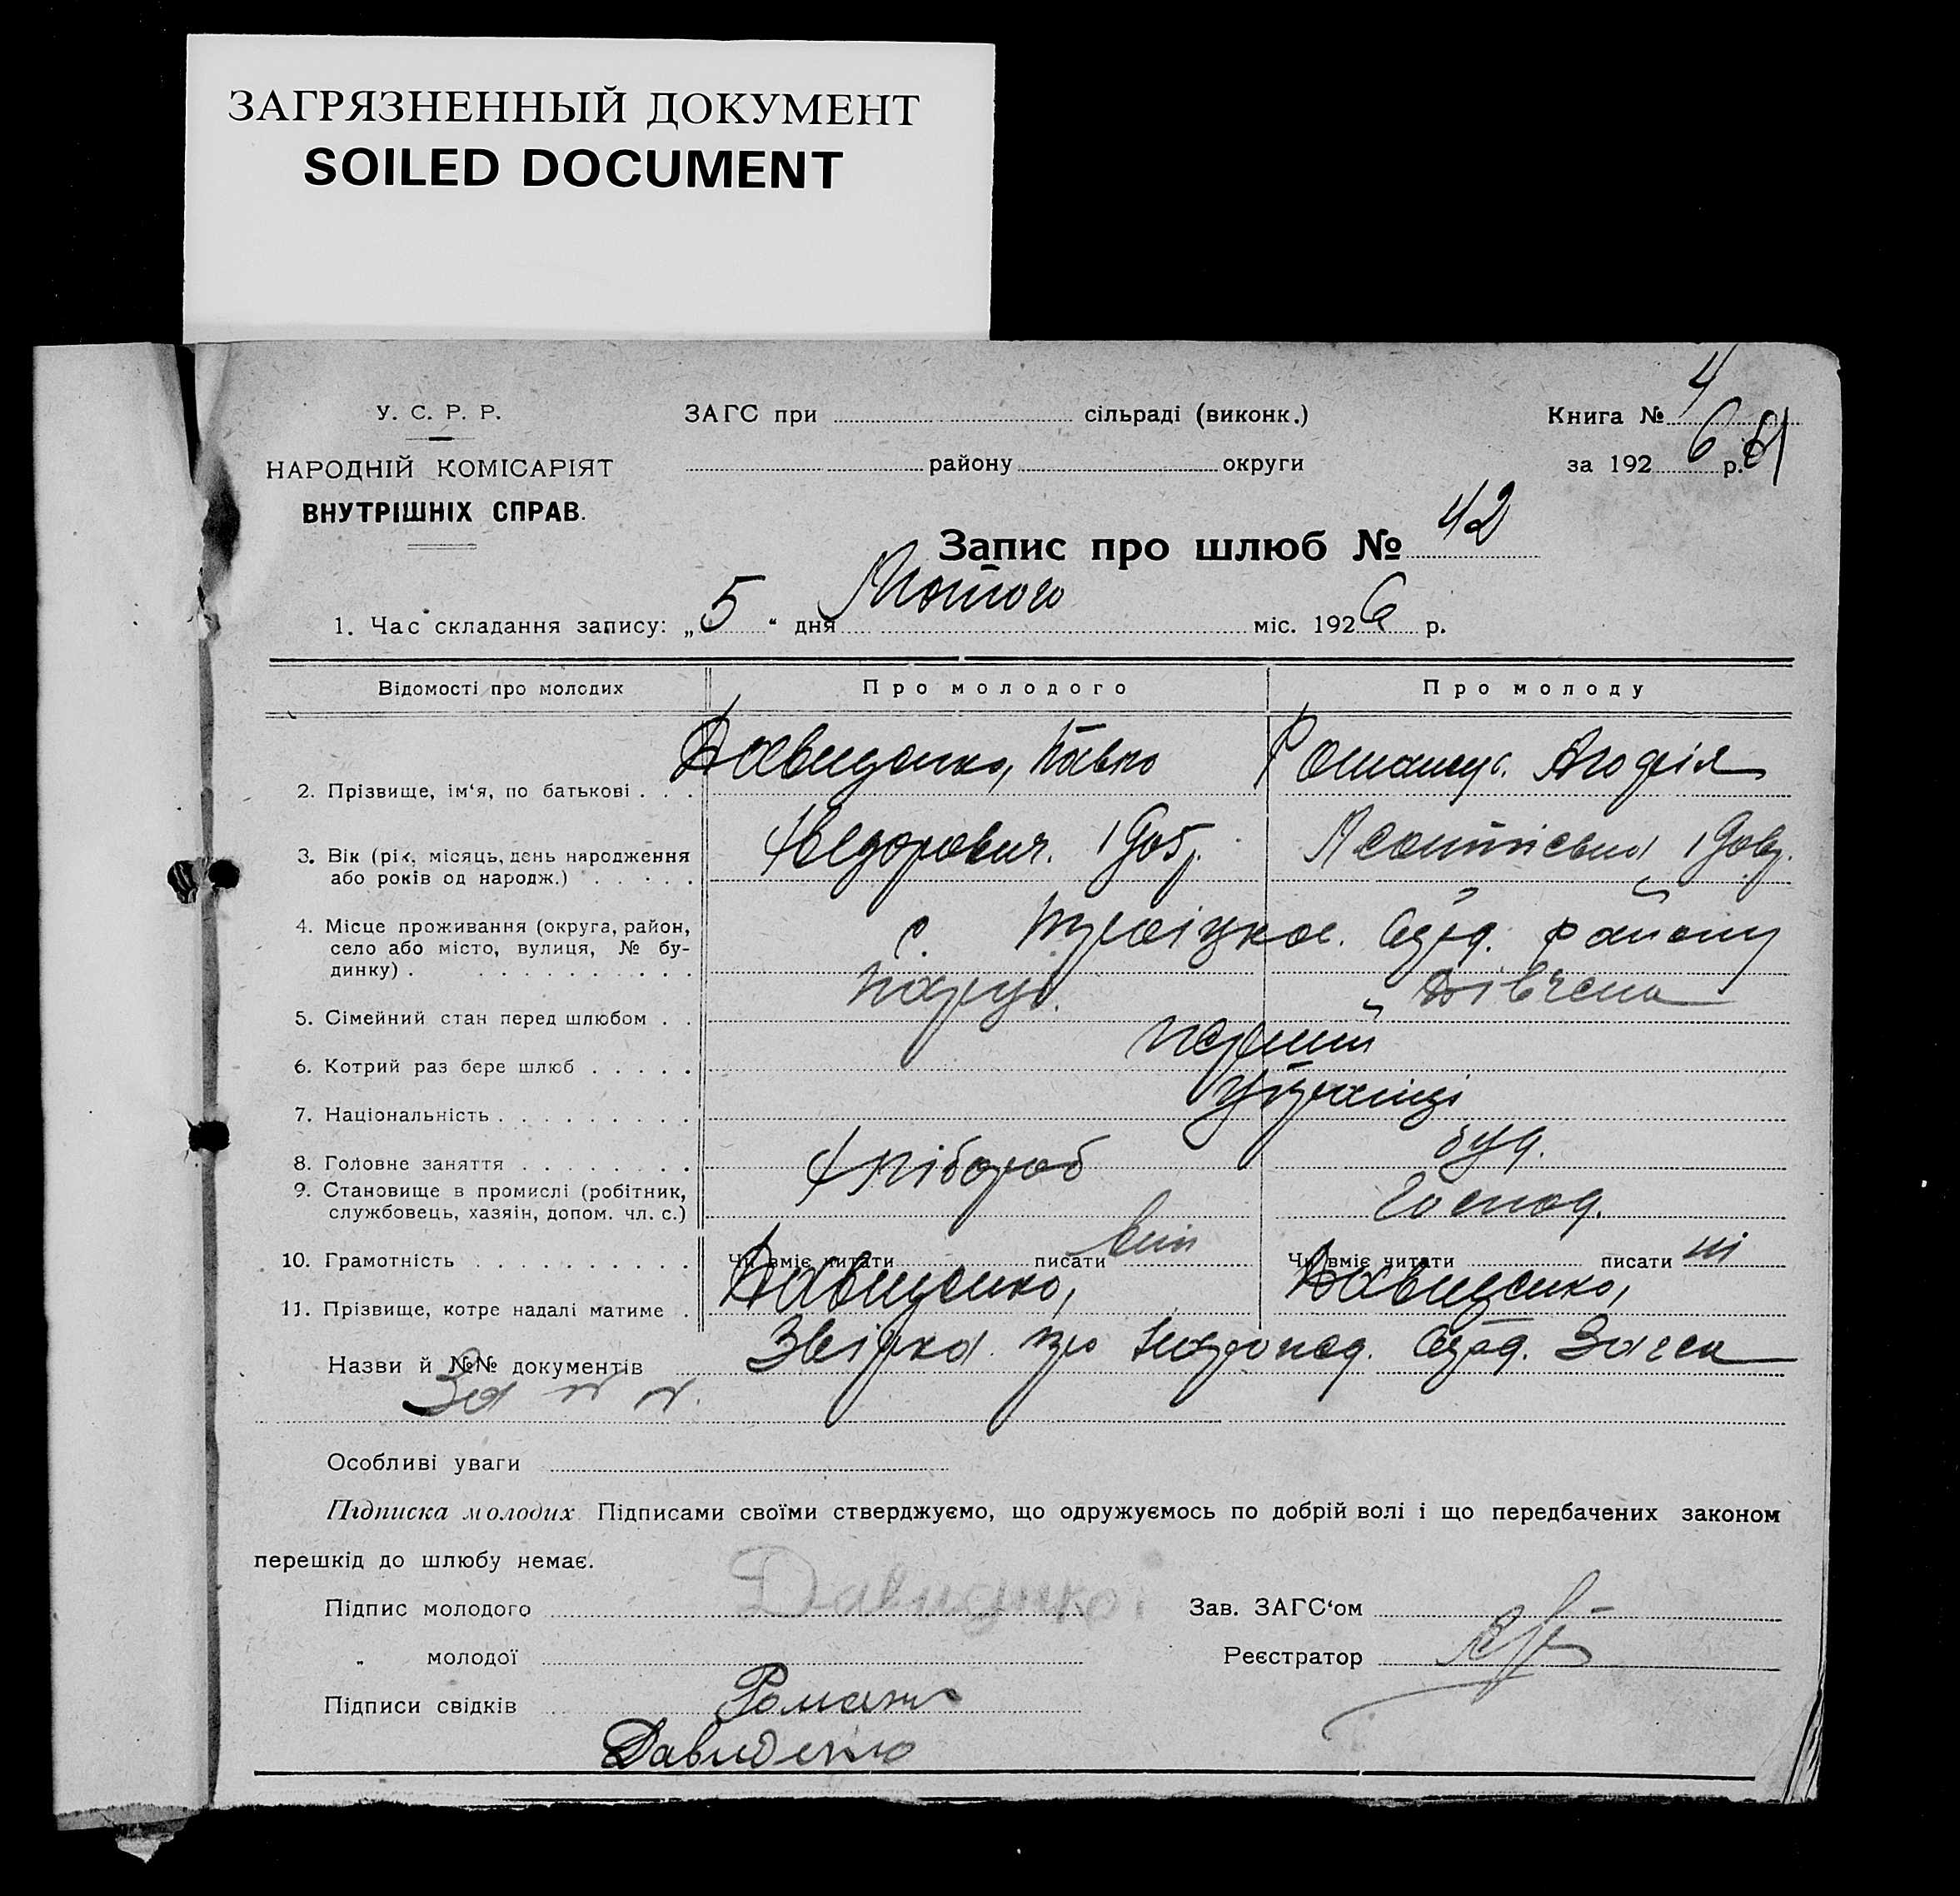 ЗАГРЯЗНЕННЫЙ ДОКУМЕНТ
SOILED DOCUMENT
У. С. Р. Р.
НАРОДНІЙ КОМІСАРІЯТ
ВНУТРІШНІХ СПРАВ.
ЗАГС при сільраді (виконк.)
району округи
Книга № 4
за 192 6 р.
Запис про шлюб № 42
1. Час складання запису: „ 5 “ дня Лютого міс. 192 6 р.
Відомості про молодих Про молодого Про молоду
2. Прізвище, ім‘я, по батькові . . . Давиденко, Павло
3. Вік (рік, місяць, день народження
або років од народж.) . . . . . Хведорович. 1905р. Леонтіевна
4. Місце проживання (округа, район, с. району
село або місто, вулиця, № бу-
динку) . . . . . . . . . . .
5. Сімейний стан перед шлюбом . . Паруб. Дівчена
6. Котрий раз бере шлюб . . . . . перший
7. Національність . . . . . . . . . українці
8. Головне заняття . . . . . . . . Хлібороб
9. Становище в промислі (робітник,
службовець, хазяїн, допом. чл. с.) Господ.
10. Грамотність . . . . . . . . . . Чи вміє читати писати вміє Чи вміє читати писати ні
11. Прізвище, котре надалі матиме . Давиденко, Давиденко,
Назви й №№ документів Звірка про Загса
За
Особливі уваги
Підписка молодих Підписами своїми стверджуємо, що одружуємось по добрій волі і що передбачених законом
перешкід до шлюбу немає.
Підпис молодого Давиденко Зав. ЗАГС‘ом
„ молодої Реєстратор
Підписи свідків Роман
Давиденко